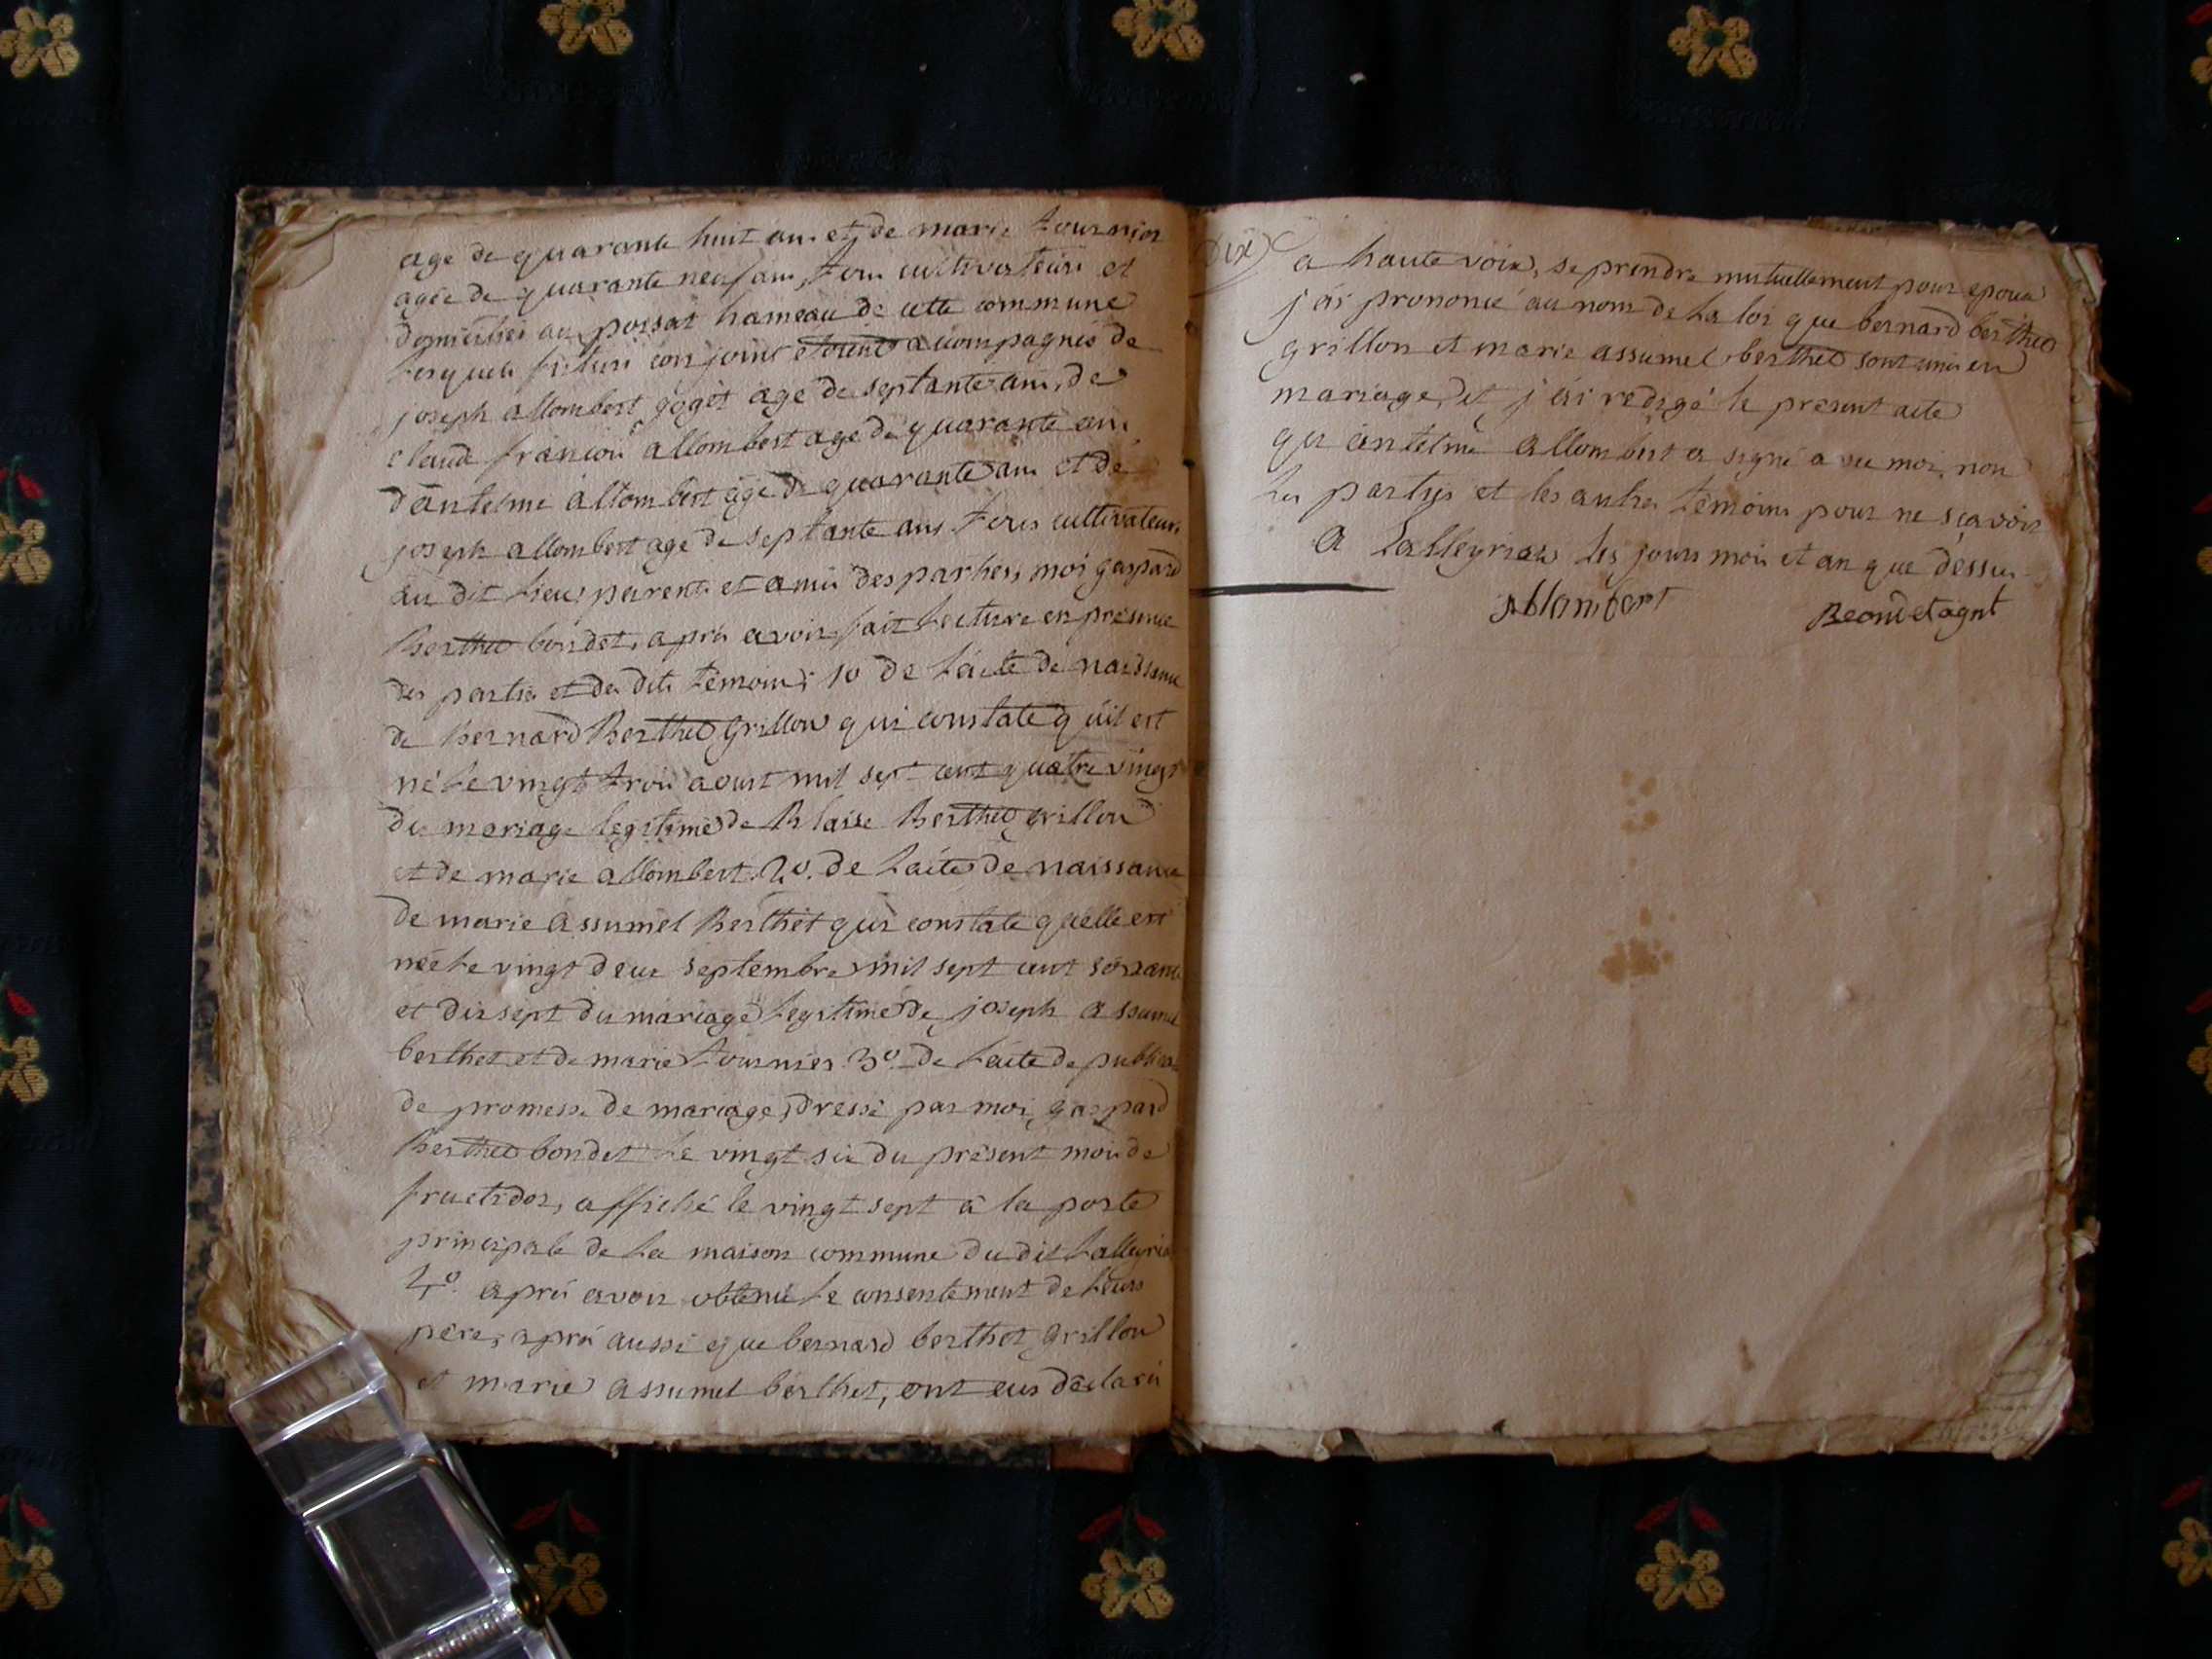 age de quarante huit ans et de marie tournier
agée de quarante neuf ans, tous cultivateurs et
domiciliés au poisat hameau de cette commune
lesquels futurs conjoints etoient acompagnés de
joseph allombert gogèt age de septante ans, de
claude françois allombert age de quarante ans
d'antelme allombert âge de quarante ans et de
joseph allombert age de septante ans tous cultivateurs
au dit lieu, parents et amis des parties, moi gaspard
Berthet bondet, après avoir fait lecture en présence
des parties et des dits témoins; 1o de l'acte de naissance
de Bernard Berthet Grillon qui constate qu'il est
né le vingt trois aoust mil sept cent quatre vingt
du mariage legitime de Blaise Berthet grillon
et de marie allombert. 2o. de l'acte de naissance
de marie assumel Berthet qui constate quelle est
née le vingt deux septembre mil sept cent soixante
et dix sept du mariage legitime de joseph assumel
berthet et de marie tournier. 3o. de l'acte de publica
de promesse de mariage, dressé par moi gaspard
Berthet bondet le vingt six du présent mois de
fructidor, affiché le vingt sept à la porte
principale de la maison commune du dit Lalleyria
4o. après avoir obtenu le consentement de leurs
pere, après aussi que bernard berthet grillon
et marie assumel berthet, ont eus déclaré
dix
a haute voix, se prendre mutuellement pour epoux
j'ai prononcé au nom de la loi que bernard berthet
grillon et marie assumel berthet sont unis en
mariage, et j'ai redigé le present acte
qu'antelme allombert a signé avec moi, non
les partyes et les autres témoins pour ne sçavoir
a Lalleyriat les jours mois et an que dessus
Allombert